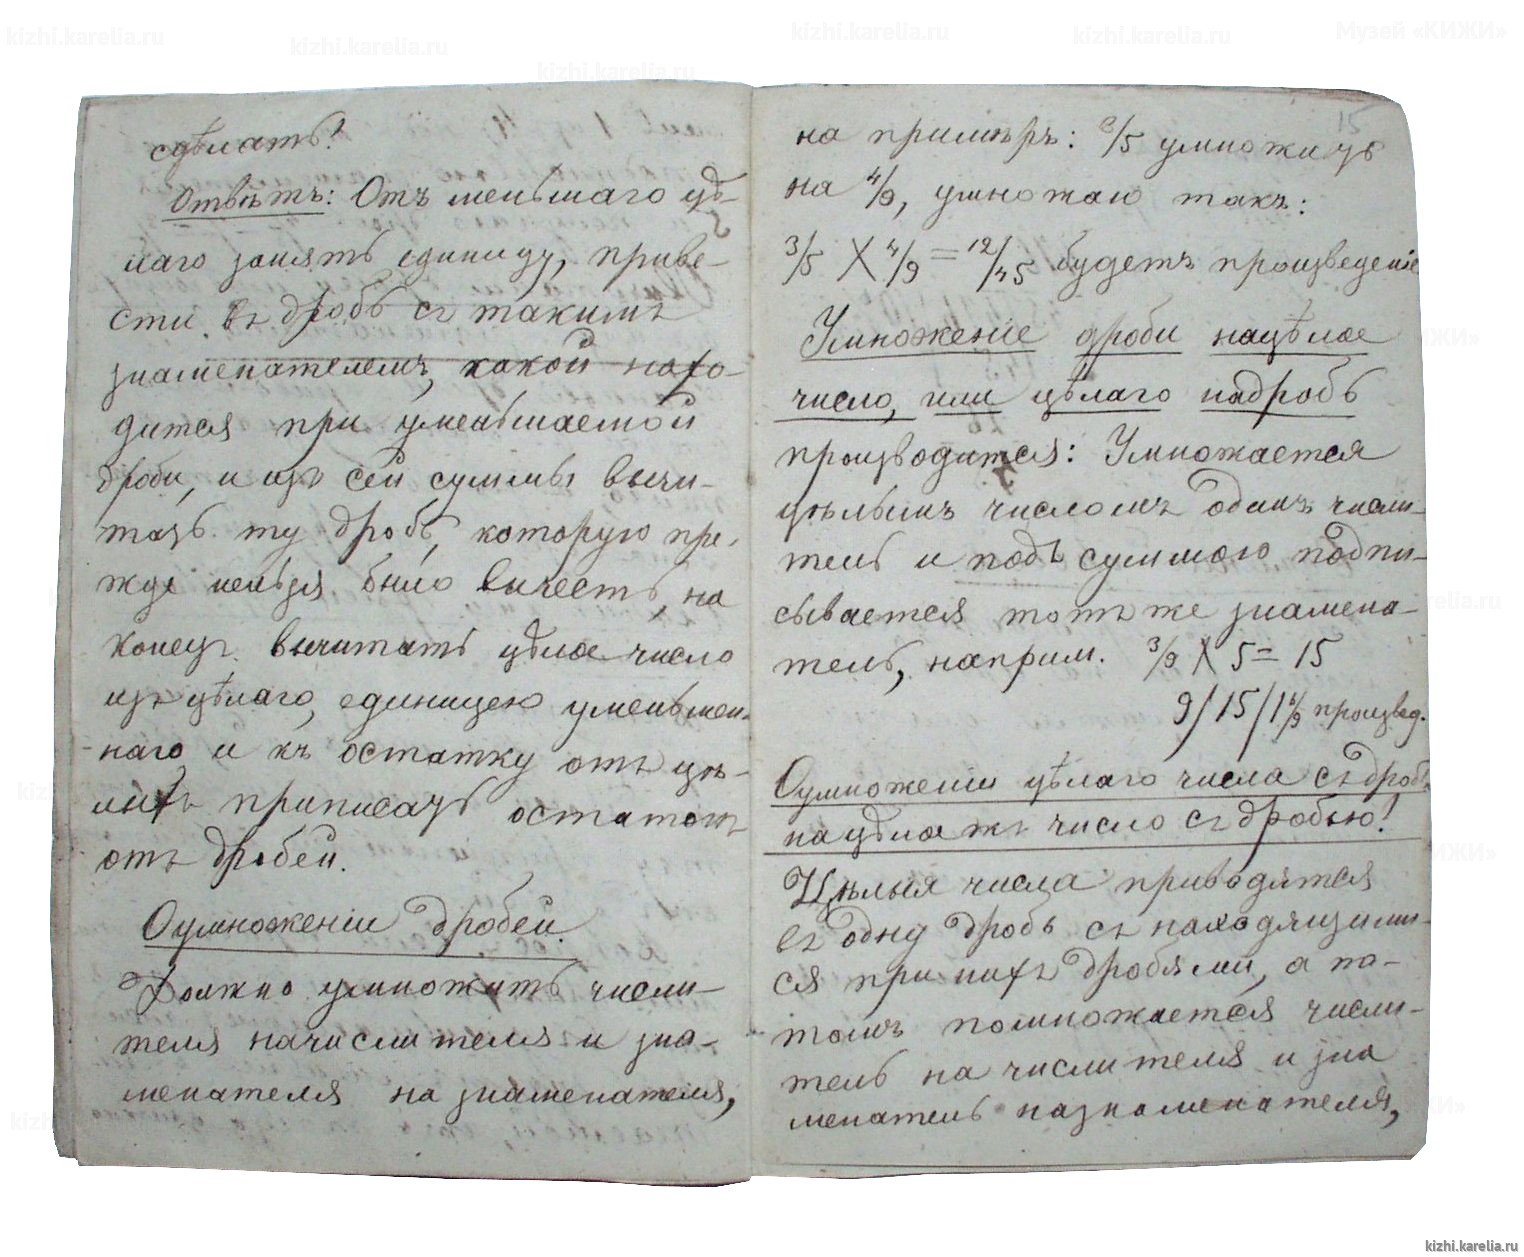 сдѣлать?
Отвѣтъ: Отъ меньшаго цѣ-
лаго занять единицу, приве-
сти въ дробь съ такимъ
знаменателемъ, какой нахо-
дится при уменьшаемой
дроби, и изъ сей суммы вычи-
тать ту дробь, которую пре-
жде нельзя было вычесть, на
конецъ вычитать цѣлое число
изъ цѣлаго, единицею уменьшен-
наго и къ остатку отъ цѣ-
лыхъ приписать остатокъ
отъ дробей.
Оумноженіи дробей.
Должно умножить числи-
теля начислителя и зна-
менателя на знаменателя,
15
на примѣръ: 3/5 умножить
на 4/9, умножаю такъ:
3/5 X 4/9 = 12/45 будетъ произведеніе
Умноженіе дроби нацѣлое
число, или цѣлаго надробь
производится: Умножается
цѣлымъ числомъ одинъ числи-
тель и подъ суммою подпи-
сывается тотъ же знамена-
тель, наприм. 3/9 X 5 = 15
9/15/1 6/9 произвед.
Оумноженіи цѣлаго числа съ дроб.
нацѣлое жъ число съ дробью!
Цѣлыя числа приводятся
въ одну дробь съ находящими-
ся при нихъ дробями, а по-
томъ помножается числи-
тель на числителя и зна
менатель назнаменателя,
kizhi.karelia.ru
kizhi.karelia.ru
kizhi.karelia.ru
kizhi.karelia.ru
kizhi.karelia.ru
Музей «КИЖИ»
kizhi.karelia.ru